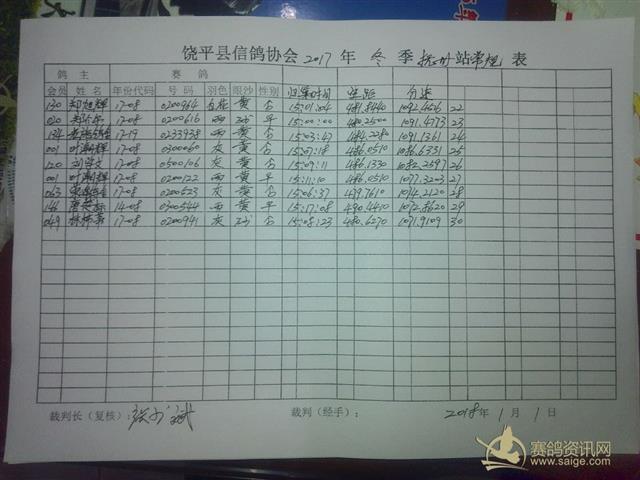 饶平县信鸽协会2017年 冬 季 抚州站常规 表
鸽 主 赛 鸽
会员 姓 名 年份代码 号 码 羽色 眼沙 性别 归巢时间 空距 分速
130 17-08 0200964 黄 15:01:04 481.8440 1092.4656 22
020 17-08 0200616 雨 砂 平 15:00:00 480.2500 1091.4773 23
134 17-19 0233938 灰 黄 15:03:47 484.2280 1091.1361 24
001 叶潮辉 17-08 0300060 灰 黄 15:07:18 486.0510 1086.6331 25
120 刘学文 17-08 0500106 灰 黄 15:09:11 486.1330 1082.2597 26
001 叶潮辉 17-08 0200122 雨 黄 平 15:11:10 486.0510 1077.3203 27
063 17-08 0200523 灰 黄 15:06:37 1074.2120 28
146 14-08 0300544 雨 黄 平 15:17:08 490.4410 1072.8620 29
049 17-08 0200941 灰 砂 15:08:23 480.6270 1071.9109 30
裁判长（复核）： 裁判（经手）： 2018年 1 月 1 日
赛鸽资讯网
www.saige.com